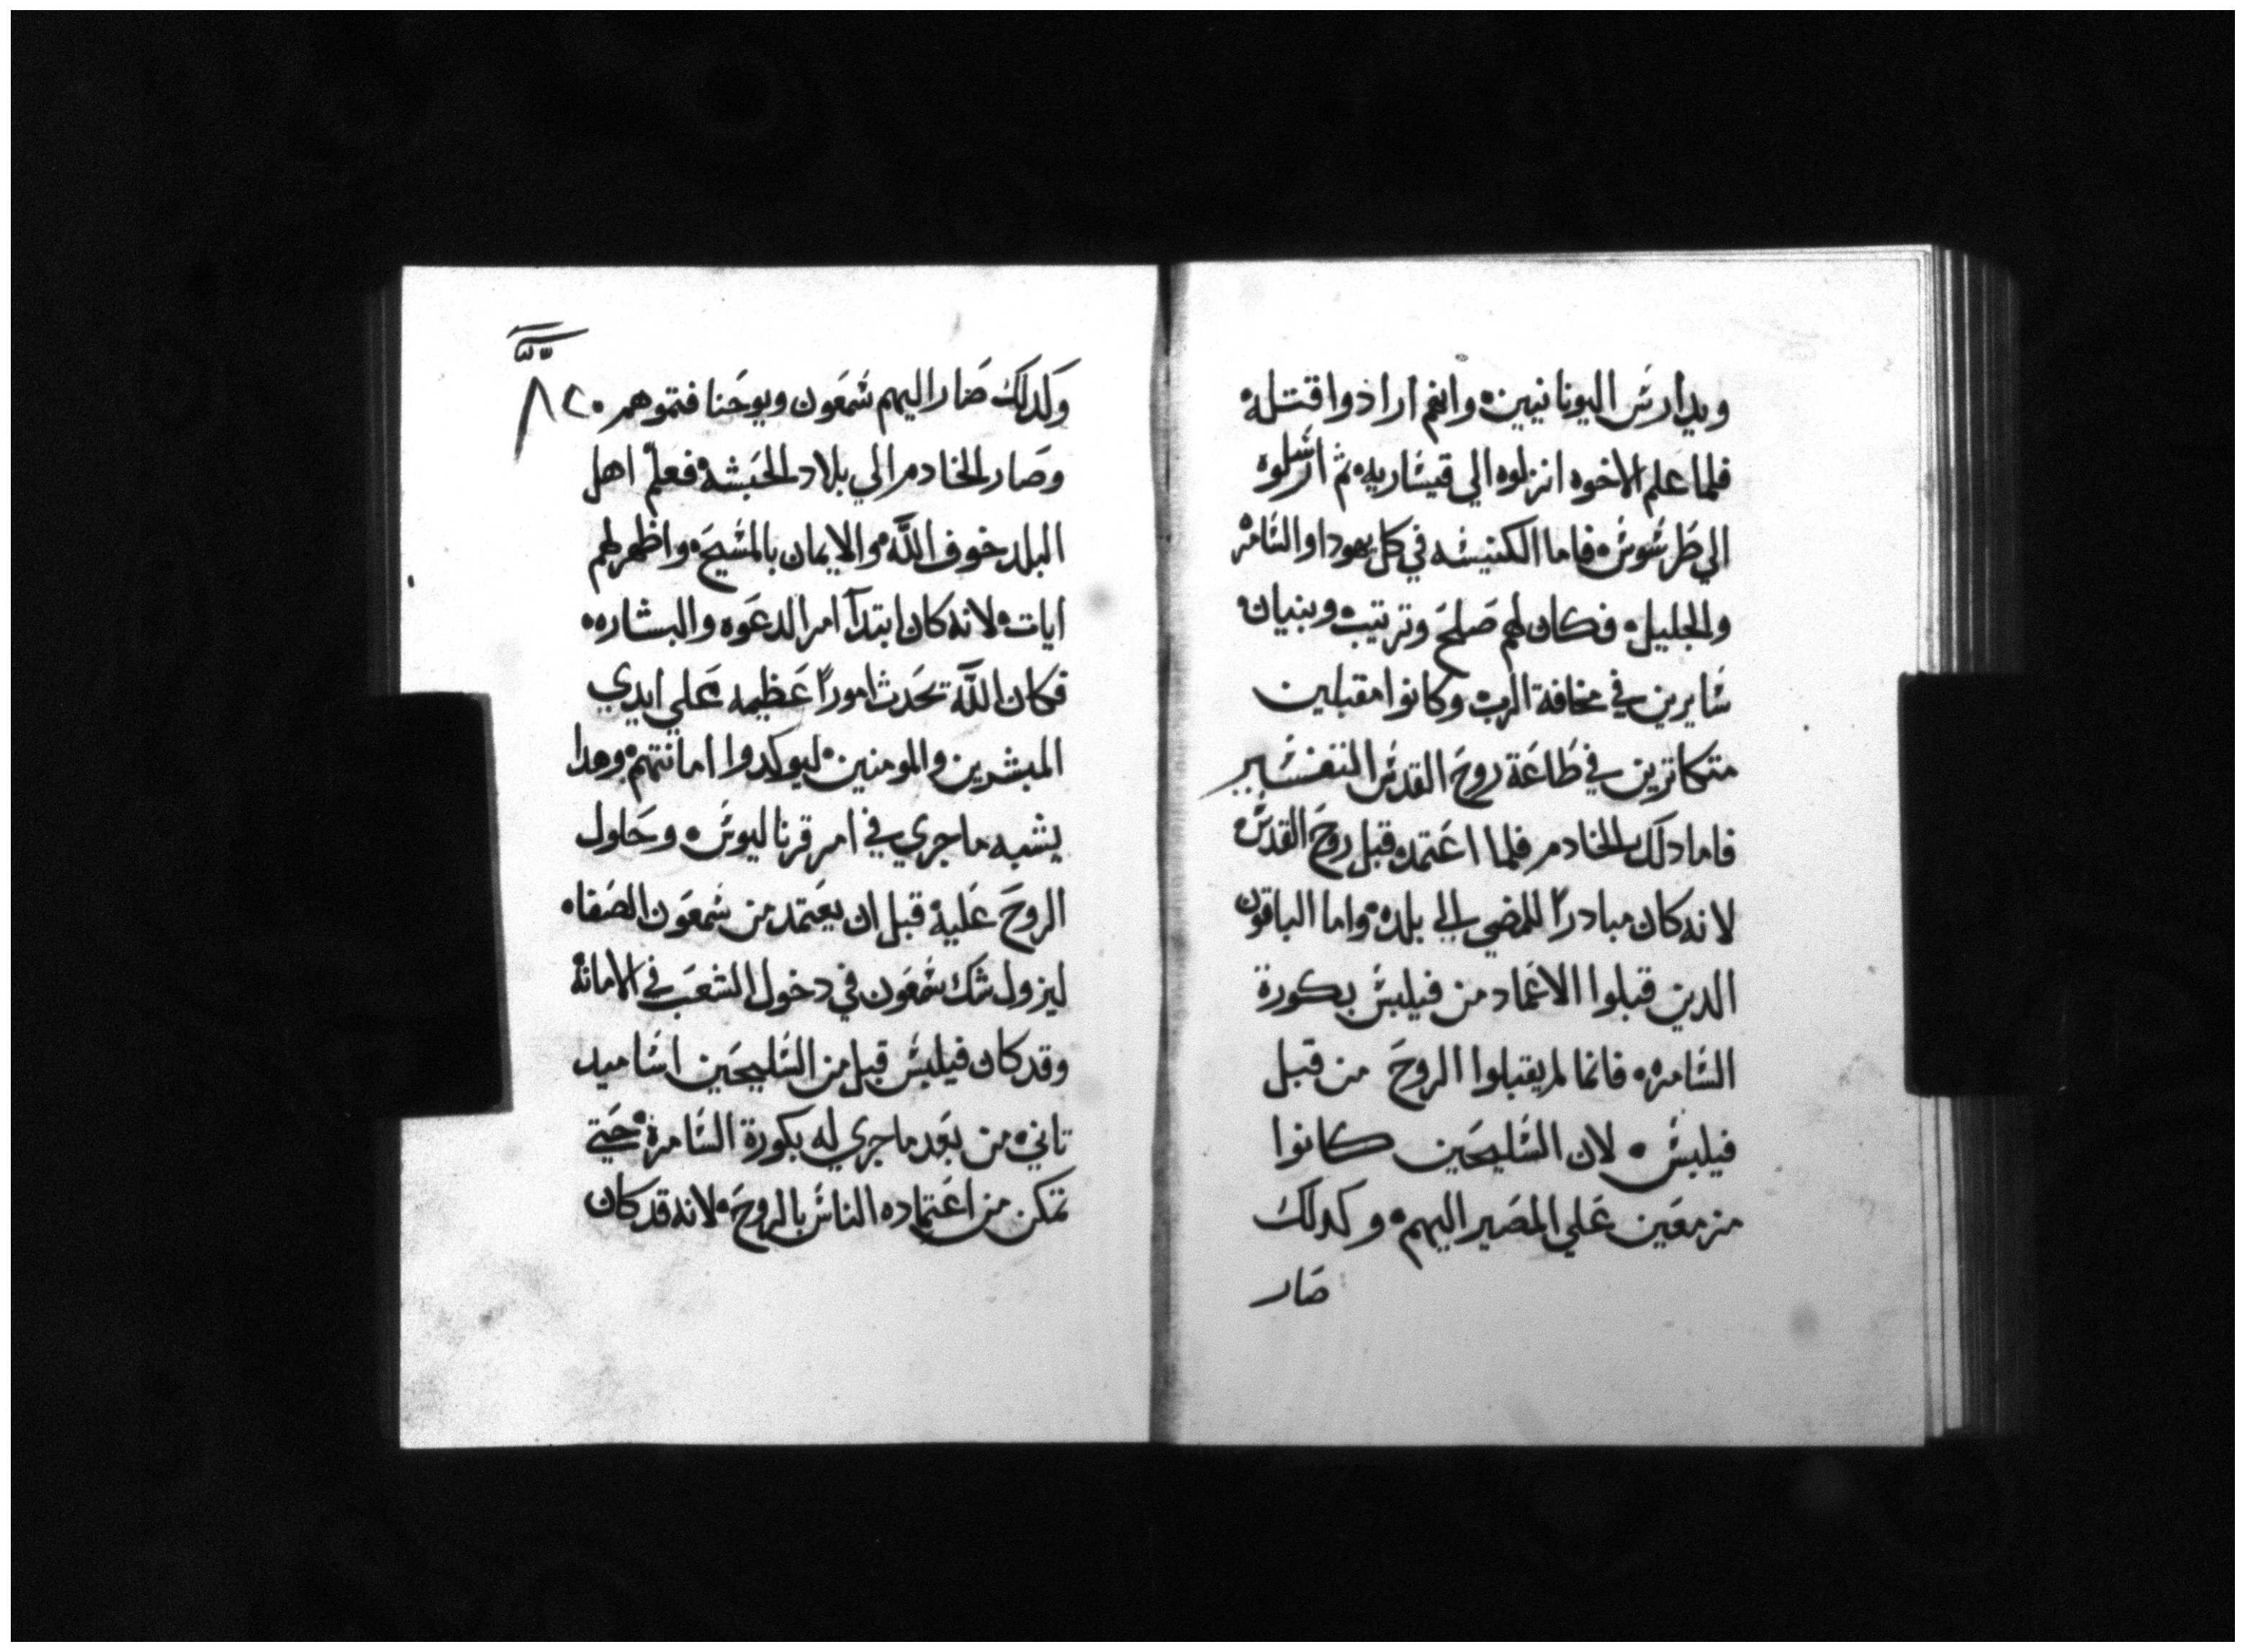 ويدارس اليونانيين وانهم ارادوا قتله
فلما علم الاخوه انزلوه الي قيساريه ثم ارسلوه
الي طرسوس فاما الكنيسه في كل يهودا والسامره
والجليل فكان لهم صلح وترتيب وبنيان
سايرين في مخافة الرب وكانوا مقبلين
متكاترين في طاعة روح القدس التفسير
فاما دلك الخادم فلما اعتمد قبل روح القدس
لانه كان مبادرًا للمضي الي بلده واما الباقون
الدين قبلوا الاعماد من فيلبس بكورة
السامره فانما لم يقبلوا الروح من قبل
فيلبس لان السليحين كانوا
مزمعين علي المصير اليهم وكدلك
صار
وكدلك صار اليهم شمعون ويوحنا فتموهم
وصار الخادم الي بلاد الحبشه فعلم اهل
البلد خوف الله والايمان بالمسيح واظهر لهم
ايات لانه كان ابتدآ امر الدعوه والبشاره
فكان الله تحدث امورًا عظيمه علي ايدي
المبشرين والمومنين ليوكدوا امانتهم وهدا
يشبه ما جري في امر قرناليوس وحلول
الروح عليه قبل ان يعتمد من شمعون الصفا
ليزول شك شمعون في دخول الشعب في الامانه
وقد كان فيلبس قبل من السليحين اساميد
تاني من بعد ما جري له بكورة السامرة حتي
تمكن من اعتماده الناس بالروح لانه قد كان